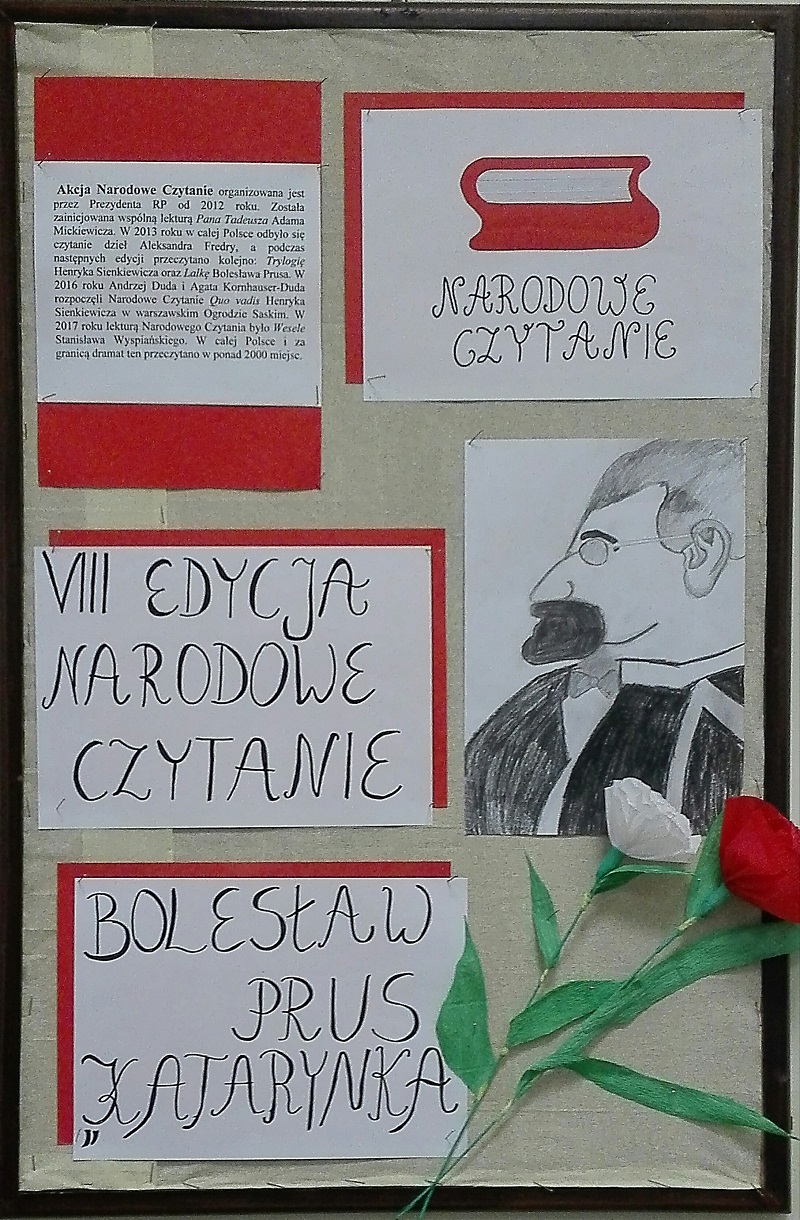 Akcja Narodowe Czytanie organizowana jest
przez Prezydenta RP od 2012 roku. Została
zainicjowana wspólną lekturą Pana Tadeusza Adama
Mickiewicza. W 2013 roku w całej Polsce odbyło się
czytanie dzieł Aleksandra Fredry, a podczas
następnych edycji przeczytano kolejno: Trylogię
Henryka Sienkiewicza oraz Lalkę Bolesława Prusa. W
2016 roku Andrzej Duda i Agata Kornhauser-Duda
rozpoczęli Narodowe Czytanie Quo vadis Henryka
Sienkiewicza w warszawskim Ogrodzie Saskim. W
2017 roku lekturą Narodowego Czytania było Wesele
Stanisława Wyspiańskiego. W całej Polsce i za
granicą dramat ten przeczytano w ponad 2000 miejsc.
NARODOWE
CZYTANIE
VIII EDYCJA
NARODOWE
CZYTANIE
BOLESŁAW
PRUS
„KATARYNKA